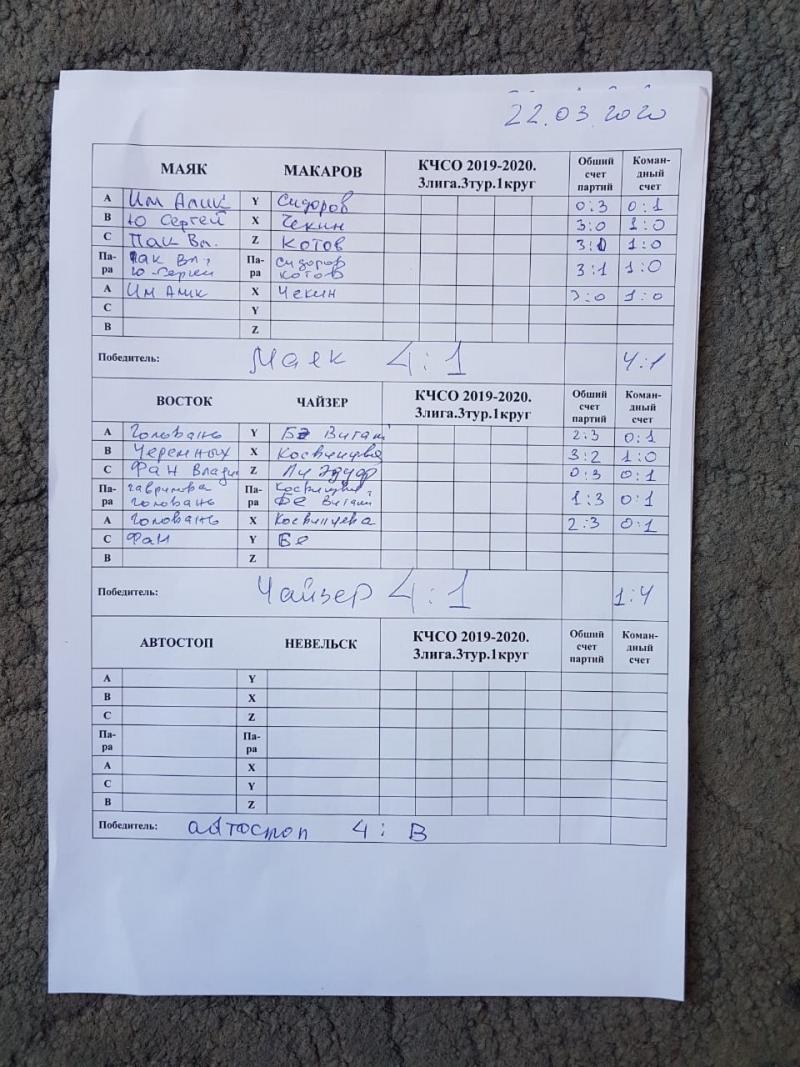 22.03.2020
МАЯК МАКАРОВ КЧСО 2019-2020. 3лига.3тур.1круг Общий счет партий Коман-дный счет
A Им Алик Y Сидоров 0:3 0:1
B Ю Сергей X Чекин 3:0 1:0
C Пак Вл. Z Котов 3:1 1:0
Па-ра Пак Вл, Ю Сергей Па-ра Сидоров Котов 3:1 1:0
A Им Алик X Чекин 3:0 1:0
C Y
B Z
Победитель: Маяк 4:1 4:1
ВОСТОК ЧАЙЗЕР КЧСО 2019-2020. 3лига.3тур.1круг Общий счет партий Коман-дный счет
A Головань Y Бэ 2:3 0:1
B Черемных X 3:2 1:0
C Фан Влади Z Ли Эдуар 0:3 0:1
Па-ра Головань Па-ра Бе 1:3 0:1
A Головань X 2:3 0:1
C Фан Y Бе
B Z
Победитель: Чайзер 4:1 1:4
АВТОСТОП НЕВЕЛЬСК КЧСО 2019-2020. 3лига.3тур.1круг Общий счет партий Коман-дный счет
A Y
B X
C Z
Па-ра Па-ра
A X
C Y
B Z
Победитель: автостоп 4: В